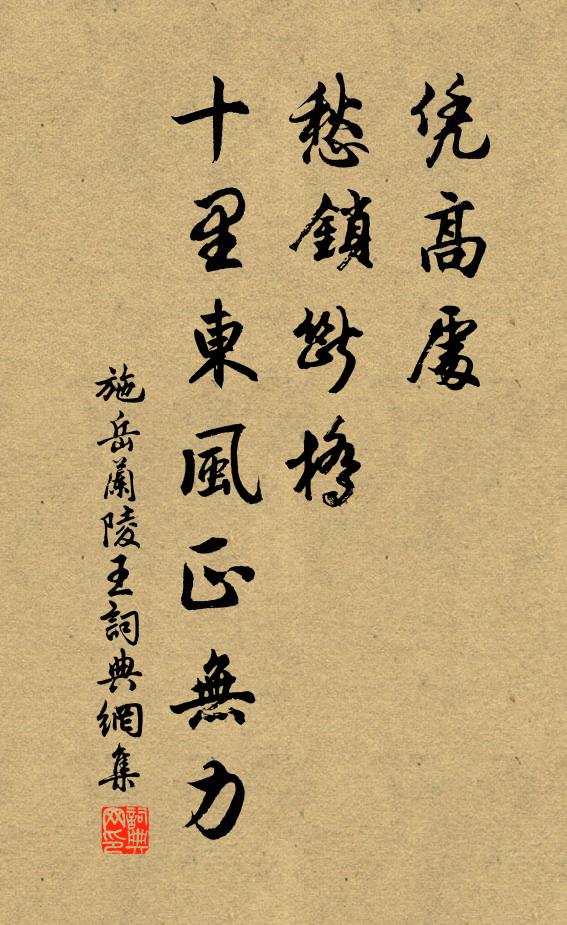 凭高處
愁鎖斷橋
十里東風正無力
施岳蘭陵王詞典網集
詞典網印